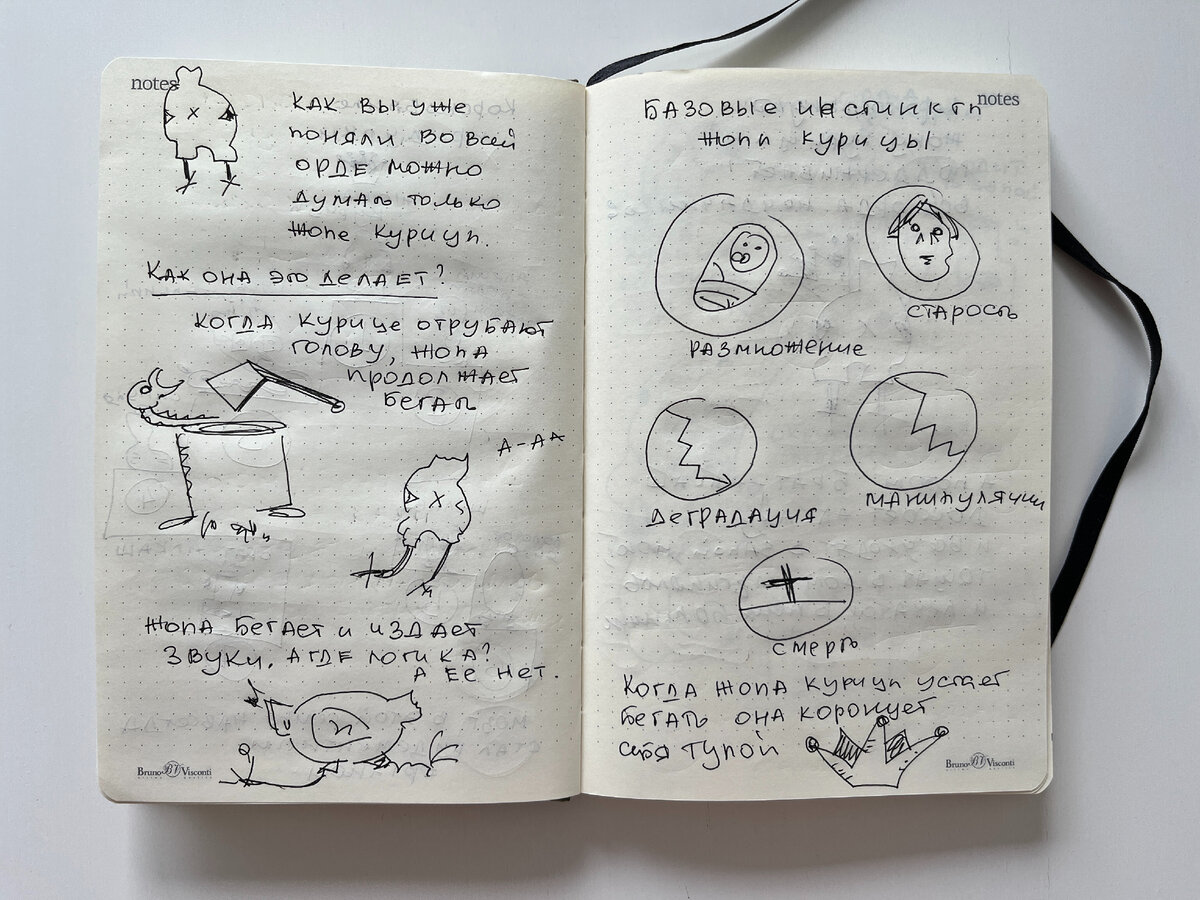 notes
КАК ВЫ УЖЕ
ПОНЯЛИ ВО ВСЕЙ
ОРДЕ МОЖНО
ДУМАТЬ ТОЛЬКО
ЖОПЕ КУРИЦЫ.
КАК ОНА ЭТО ДЕЛАЕТ?
КОГДА КУРИЦЕ ОТРУБАЮТ
ГОЛОВУ, ЖОПА
ПРОДОЛЖАЕТ
БЕГАТЬ
А-АА
ЖОПА БЕГАЕТ И ИЗДАЕТ
ЗВУКИ. А ГДЕ ЛОГИКА?
А ЕЕ НЕТ.
Bruno Visconti
notes
БАЗОВЫЕ ИНСТИНКТЫ
ЖОПЫ КУРИЦЫ
РАЗМНОЖЕНИЕ
СТАРОСТЬ
ДЕГРАДАЦИЯ
МАНИПУЛЯЦИИ
СМЕРТЬ
КОГДА ЖОПА КУРИЦЫ УСТАЕТ
БЕГАТЬ ОНА КОРОНУЕТ
СЕБЯ ТУПОЙ
Bruno Visconti